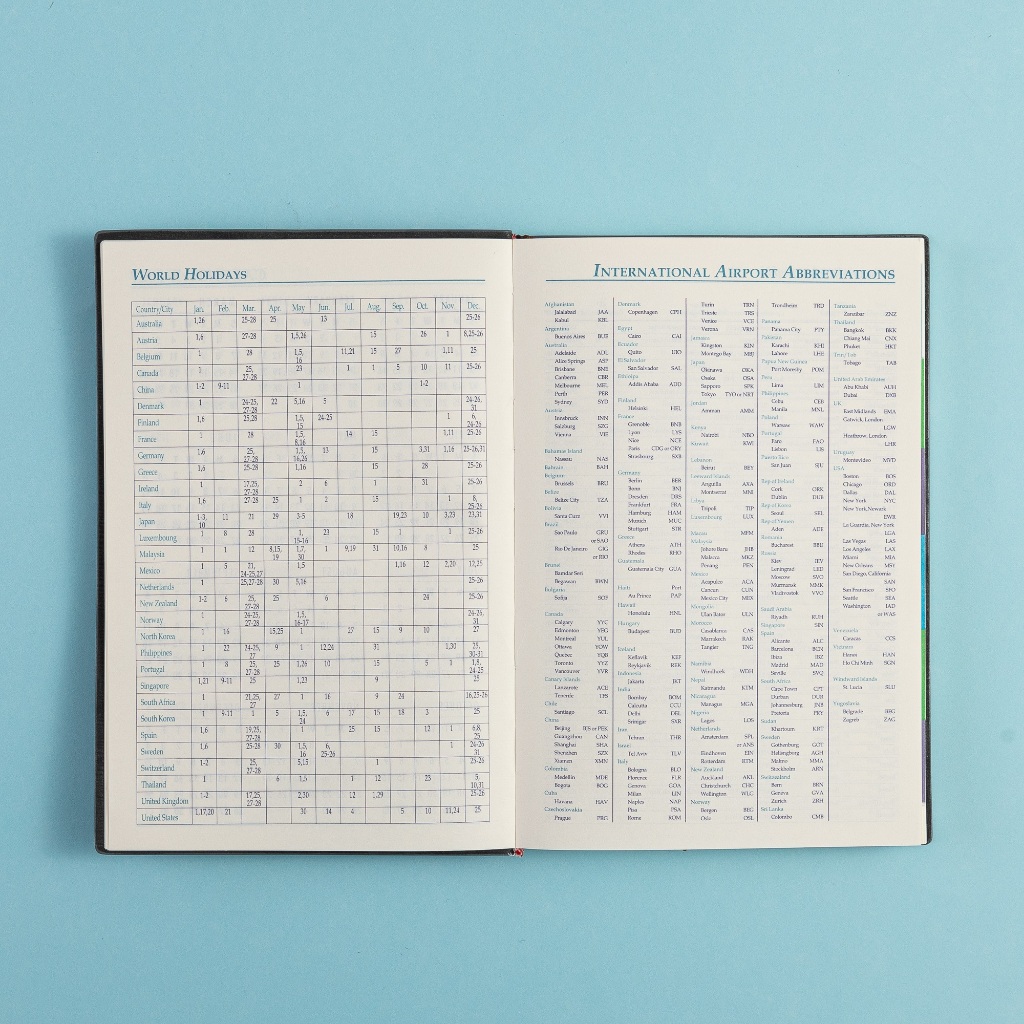 WORLD HOLIDAYS
Country/City Jan. Feb. Mar. Apr. May Jun. Jul. Aug. Sep. Oct. Nov. Dec.
Australia 1,26 25-28 25 13 25-26
Austria 1,6 27-28 1,5,26 15 26 1 8,25-26
Belgium 1 28 1,5, 16 11,21 15 27 1,11 25
Canada 1 25, 27-28 23 1 1 5 10 11 25-26
China 1-2 9-11 1 1-2
Denmark 1 24-25, 27-28 22 5,16 5 24-26, 31
Finland 1,6 25,28 1,5, 15 24-25 1 6, 24-26
France 1 28 1,5, 8,16 14 15 1,11 25
Germany 1,6 25, 27-28 1,5, 16,26 13 15 3,31 1,16 25-26,31
Greece 1,6 25-28 1,16 15 28 25-26
Ireland 1 17,25, 27-28 2 6 1 31 25-26
Italy 1,6 27-28 25 1 2 15 1 8, 25-26
Japan 1-3, 10 11 21 29 3-5 18 19,23 10 3,23 23,31
Luxembourg 1 8 28 1, 15-16 23 15 1 1 25-26
Malaysia 1 1 12 8,15, 19 1,7, 30 1 9,19 31 10,16 8 25
Mexico 1 5 21, 24-25,27 1,5 1,16 12 2,20 12,25
Netherlands 25,27-28 30 5,16 25-26
New Zealand 1-2 6 25, 27-28 25 6 24 25-26
Norway 1 24-25, 27-28 1,5, 16-17 24-26, 31
North Korea 1 16 15,25 1 27 15 9 10 27
Philippines 1 22 24-25, 27 9 1 12,24 31 1,30 25, 30-31
Portugal 1 8 25, 27-28 25 1,26 10 15 5 1 1,8, 24-25
Singapore 1,21 9-11 25 1,23 9 25
South Africa 1 21,25, 27-28 27 1 16 9 24 16,25-26
South Korea 1 9-11 1 5 1,5, 24 6 17 15 18 3 25
Spain 1,6 19,25, 27-28 1 25 15 12 1 6,8, 25
Sweden 1,6 25-28 30 1,5, 16 6, 25-26 1 24-26 31
Switzerland 1-2 25, 27-28 5,15 1 25-26
Thailand 1 6 1,5 1 12 23 5, 10,31
United Kingdom 1-2 17,25, 27-28 2,30 12 1,29 25-26
United States 1,17,20 21 30 14 4 5 10 11,24 25
INTERNATIONAL AIRPORT ABBREVIATIONS
Afghanistan
Jalalabad JAA
Kabul KBL
Argentina
Buenos Aires BUE
Australia
Adelaide ADL
Alice Springs ASP
Brisbane BNE
Canberra CBR
Melbourne MEL
Perth PER
Sydney SYD
Austria
Innsbruck INN
Salzburg SZG
Vienna VIE
Bahamas Island
Nassau NAS
Bahrain BAH
Belgium
Brussels BRU
Belize
Belize City TZA
Bolivia
Santa Cruz VVI
Brazil
Sao Paulo GRU
or SAO
Rio De Janeiro GIG
or RIO
Brunei
Bandar Seri
Begawan BWN
Bulgaria
Sofija SOF
Canada
Calgary YYC
Edmonton YEG
Montreal YUL
Ottawa YOW
Quebec YQB
Toronto YYZ
Vancouver YVR
Canary Islands
Lanzarote ACE
Tenerife TFS
Chile
Santiago SCL
China
Beijing BJS or PEK
Guangzhou CAN
Shanghai SHA
Shenzhen SZX
Xiamen XMN
Colombia
Medellin MDE
Bogota BOG
Cuba
Havana HAV
Czechoslovakia
Prague PRG
Denmark
Copenhagen CPH
Egypt
Cairo CAI
Ecuador
Quito UIO
El Salvador
San Salvador SAL
Ethiopia
Addis Ababa ADD
Finland
Helsinki HEL
France
Grenoble GNB
Lyon LYS
Nice NCE
Paris CDG or ORY
Strasbourg SXB
Germany
Berlin BER
Bonn BNJ
Dresden DRS
Frankfurt FRA
Hamburg HAM
Munich MUC
Stuttgart STR
Greece
Athens ATH
Rhodes RHO
Guatemala
Guatemala City GUA
Haiti Port
Au Prince PAP
Hawaii
Honolulu HNL
Hungary
Budapest BUD
Iceland
Keflavik KEF
Reykjavik REK
Indonesia
Jakarta JKT
India
Bombay BOM
Calcutta CCU
Delhi DEL
Srinigar SXR
Iran
Tehran THR
Israel
Tel Aviv TLV
Italy
Bologna BLO
Florence FLR
Genova GOA
Milan LIN
Naples NAP
Pisa PSA
Rome ROM
Turin TRN
Trieste TRS
Venice VCE
Verona VRN
Jamaica
Kingston KIN
Montego Bay MBJ
Japan
Okinawa OKA
Osaka OSA
Sapporo SPK
Tokyo TYO or NRT
Jordan
Amman AMM
Kenya
Nairobi NBO
Kuwait KWI
Lebanon
Beirut BEY
Leeward Islands
Anguilla AXA
Montserrat MNI
Libya
Tripoli TIP
Luxembourg LUX
Macau MFM
Malaysia
Johore Baru JHB
Malacca MKZ
Penang PEN
Mexico
Acapulco ACA
Cancun CUN
Mexico City MEX
Mongolia
Ulan Bator ULN
Morocco
Casablanca CAS
Marrakech RAK
Tangier TNG
Namibia
Windhoek WDH
Nepal
Katmandu KTM
Nicaragua
Managua MGA
Nigeria
Lagos LOS
Netherlands
Amsterdam SPL
or AMS
Eindhoven EIN
Rotterdam RTM
New Zealand
Auckland AKL
Christchurch CHC
Wellington WLG
Norway
Bergen BEG
Oslo OSL
Trondheim TRD
Panama
Panama City PTY
Pakistan
Karachi KHI
Lahore LHE
Papua New Guinea
Port Moresby POM
Peru
Lima LIM
Philippines
Cebu CEB
Manila MNL
Poland
Warsaw WAW
Portugal
Faro FAO
Lisbon LIS
Puerto Rico
San Juan SJU
Rep of Ireland
Cork ORK
Dublin DUB
Rep of Korea
Seoul SEL
Rep of Yemen
Aden ADE
Romania
Bucharest BBU
Russia
Kiev IEV
Leningrad LED
Moscow SVO
Murmansk MMK
Vladivostok VVO
Saudi Arabia
Riyadh RUH
Singapore SIN
Spain
Alicante ALC
Barcelona BCN
Ibiza IBZ
Madrid MAD
Seville SVQ
South Africa
Cape Town CPT
Durban DUR
Johannesburg JNB
Pretoria PRY
Sudan
Khartoum KRT
Sweden
Gothenburg GOT
Helsingborg AGH
Malmo MMA
Stockholm ARN
Switzerland
Bern BRN
Geneva GVA
Zurich ZRH
Sri Lanka
Colombo CMB
Tanzania
Zanzibar ZNZ
Thailand
Bangkok BKK
Chiang Mai CNX
Phuket HKT
Trin/Tob
Tobago TAB
United Arab Emirates
Abu Khabi AUH
Dubai DXB
UK
East Midlands EMA
Gatwick, London
LGW
Heathrow, London
LHR
Uruguay
Montevideo MVD
USA
Boston BOS
Chicago ORD
Dallas DAL
New York NYC
New York,Newark
EWR
La Guardia, New York
LGA
Las Vegas LAS
Los Angeles LAX
Miami MIA
New Orleans MSY
San Diego, California
SAN
San Francisco SFO
Seattle SEA
Washington IAD
or WAS
Venezuela
Caracas CCS
Vietnam
Hanoi HAN
Ho Chi Minh SGN
Windward Islands
St. Lucia SLU
Yugoslavia
Belgrade BEG
Zagreb ZAG